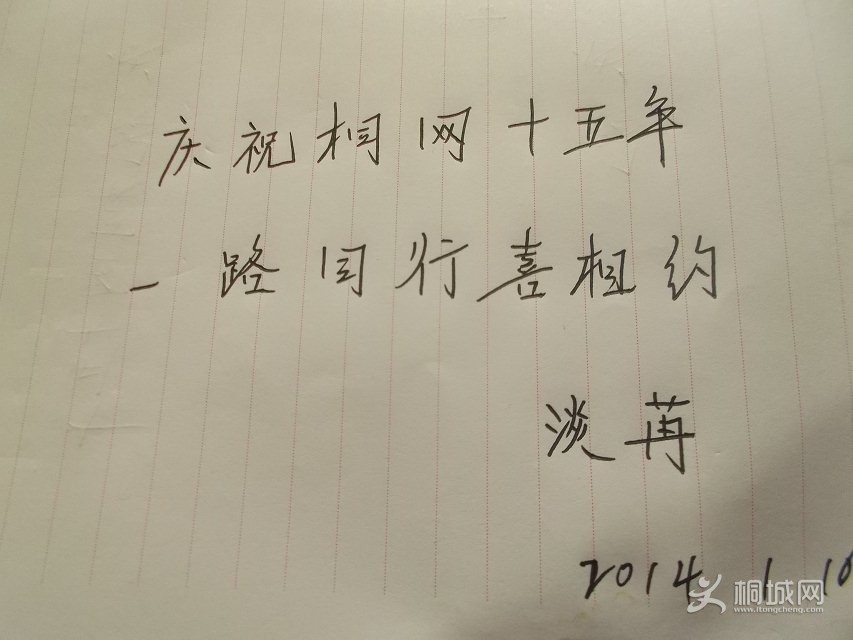 庆祝桐网十五年
一路同行喜相约
淡苒
2014 1.10
桐城网
www.itongcheng.com